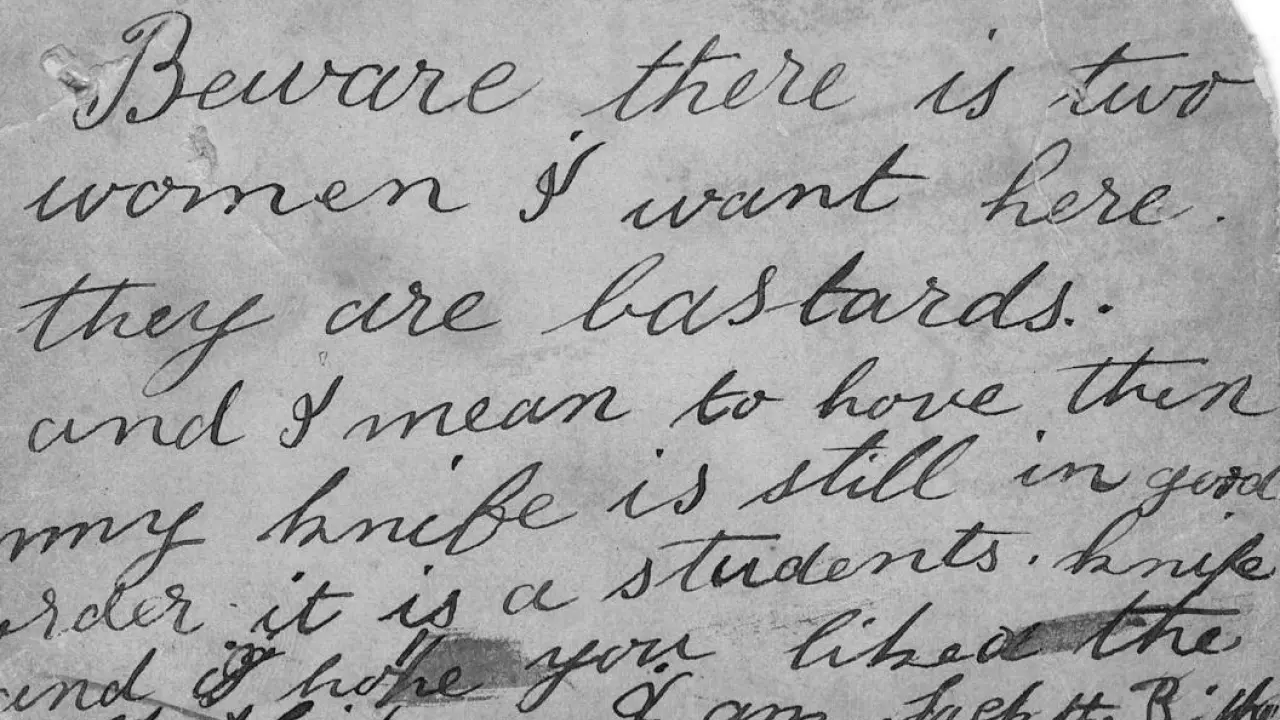 Beware there is two
women I want here.
they are bastards.
and I mean to have then
my knife is still in good
order it is a students. knife
and I hope you liked the
I am Jack the